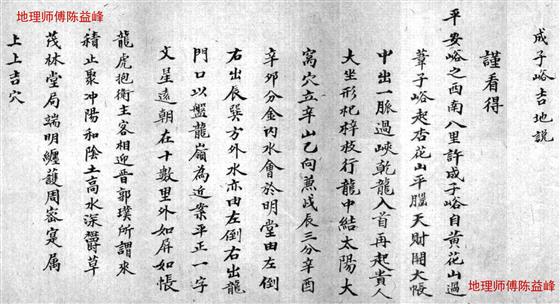 地理师傅陈益峰
成子峪吉地説
謹看得
平安峪之西南八里許成子峪自黄花山過
葦子峪起杏花山平腦天財開大帳
中出一脈過峽乾龍入首再起貴人
大坐形杞梓枝行龍中結太陽大
窩穴立辛山乙向兼戌辰三分辛酉
辛卯分金内水會於明堂由左倒
右出辰巽方外水亦由左倒右出龍
門口以盤龍嶺為近案平正一字
文星遠朝在十數里外如屏如帳
龍虎抱衛主客相迎晋郭璞所謂來
積止聚冲陽和陰土高水深欝草
茂林堂局端明纏護周密寔属
上上吉穴
地理师傅陈益峰